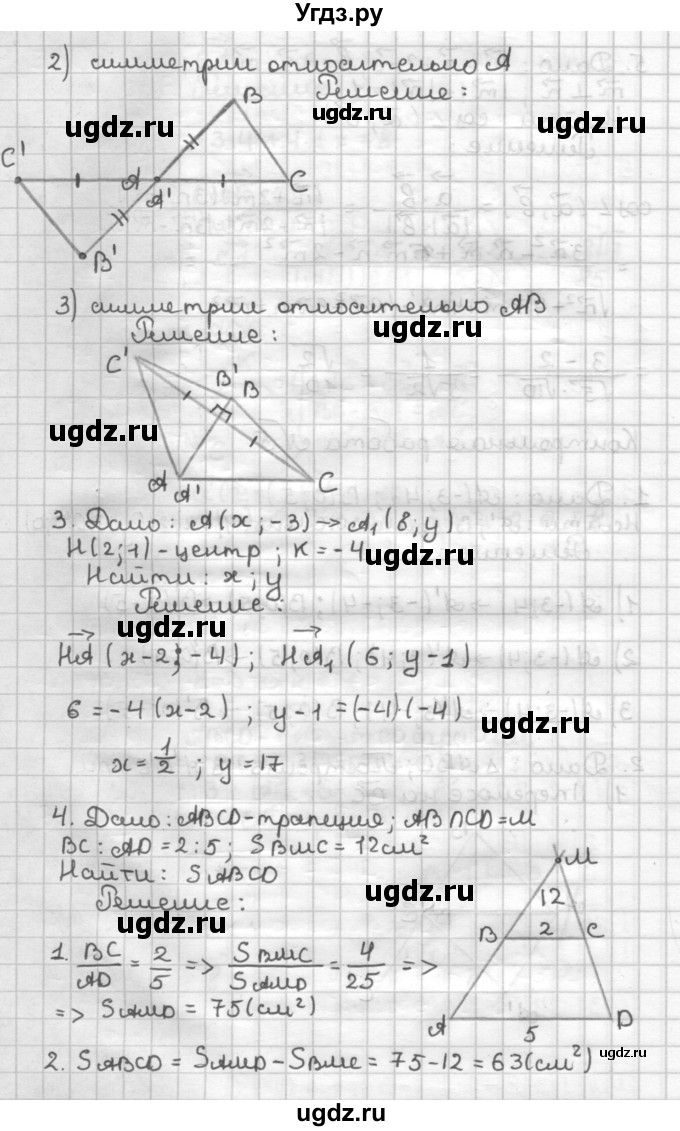 Угдз.ру
2) симметрии относительно A
Решение:
ugdz.ru
ugdz.ru
ugdz.ru
B
C'
A
A'
C
B'
3) симметрии относительно AB
Решение:
ugdz.ru
C'
B'
B
ugdz.ru
A
A'
C
3. Дано: A(x;-3)→A₁(8;y)
H(2;1)-центр; K=-4
ugdz.ru
Найти: x; y
Решение:
ugdz.ru
HA→(x-2;-4); HA₁→(6; y-1)
6=-4(x-2); y-1=(-4)·(-4)
ugdz.ru
x=1/2; y=17
4. Дано: ABCD-трапеция; AB∩CD=M
BC:AD=2:5; SBMC=12см²
Найти: SABCD
ugdz.ru
Решение:
ugdz.ru
M
12
B
2
C
A
5
D
1. BC/AD=2/5 => SBMC/SAMD=4/25 =>
=> SAMD=75(см²)
2. SABCD=SAMD-SBMC=75-12=63(см²)
ugdz.ru
ugdz.ru